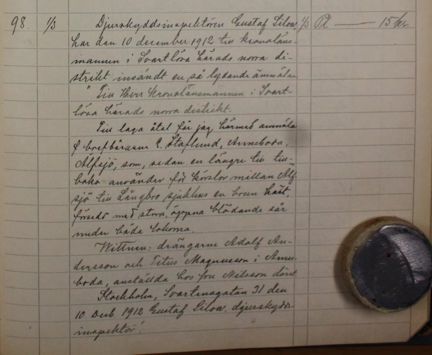 98. 1/3 Djurskyddsinspektören Gustaf Silow, 1/3 Pt — 15 kr.
har den 10 december 1912 till kronoläns-
mannen i Svartlösa härads norra di-
strikt insändt en så lydande anmälan
"Till Herr Kronolänsmannen i Svart-
lösa härads norra distrikt.
Till laga åtal får jag härmed anmäla
f. brefbäraren
Alfsjö, som, sedan en längre tid till-
baka använder för körslor mellan Alf-
sjö till Långbro sjukhus en brun häst
försedd med stora, öppna blödande sår
under båda bogarna.
Wittnen: drängarne Adolf An-
dersson och Titus Magnusson i
boda, anställda hos fru Nilsson
Stockholm, Svartensgatan 31 den
10 Deb 1912 Gustaf Silow, djurskydds-
inspektör."